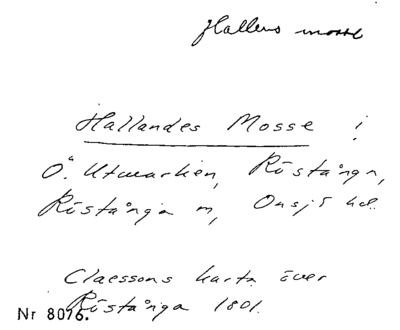 Hallens mosse
Hallandes Mosse i
Ö. Utmarken, Röstånga,
Röstånga sn, Onsjö hd.
Claessons karta över
Röstånga 1801.
Nr 8076.